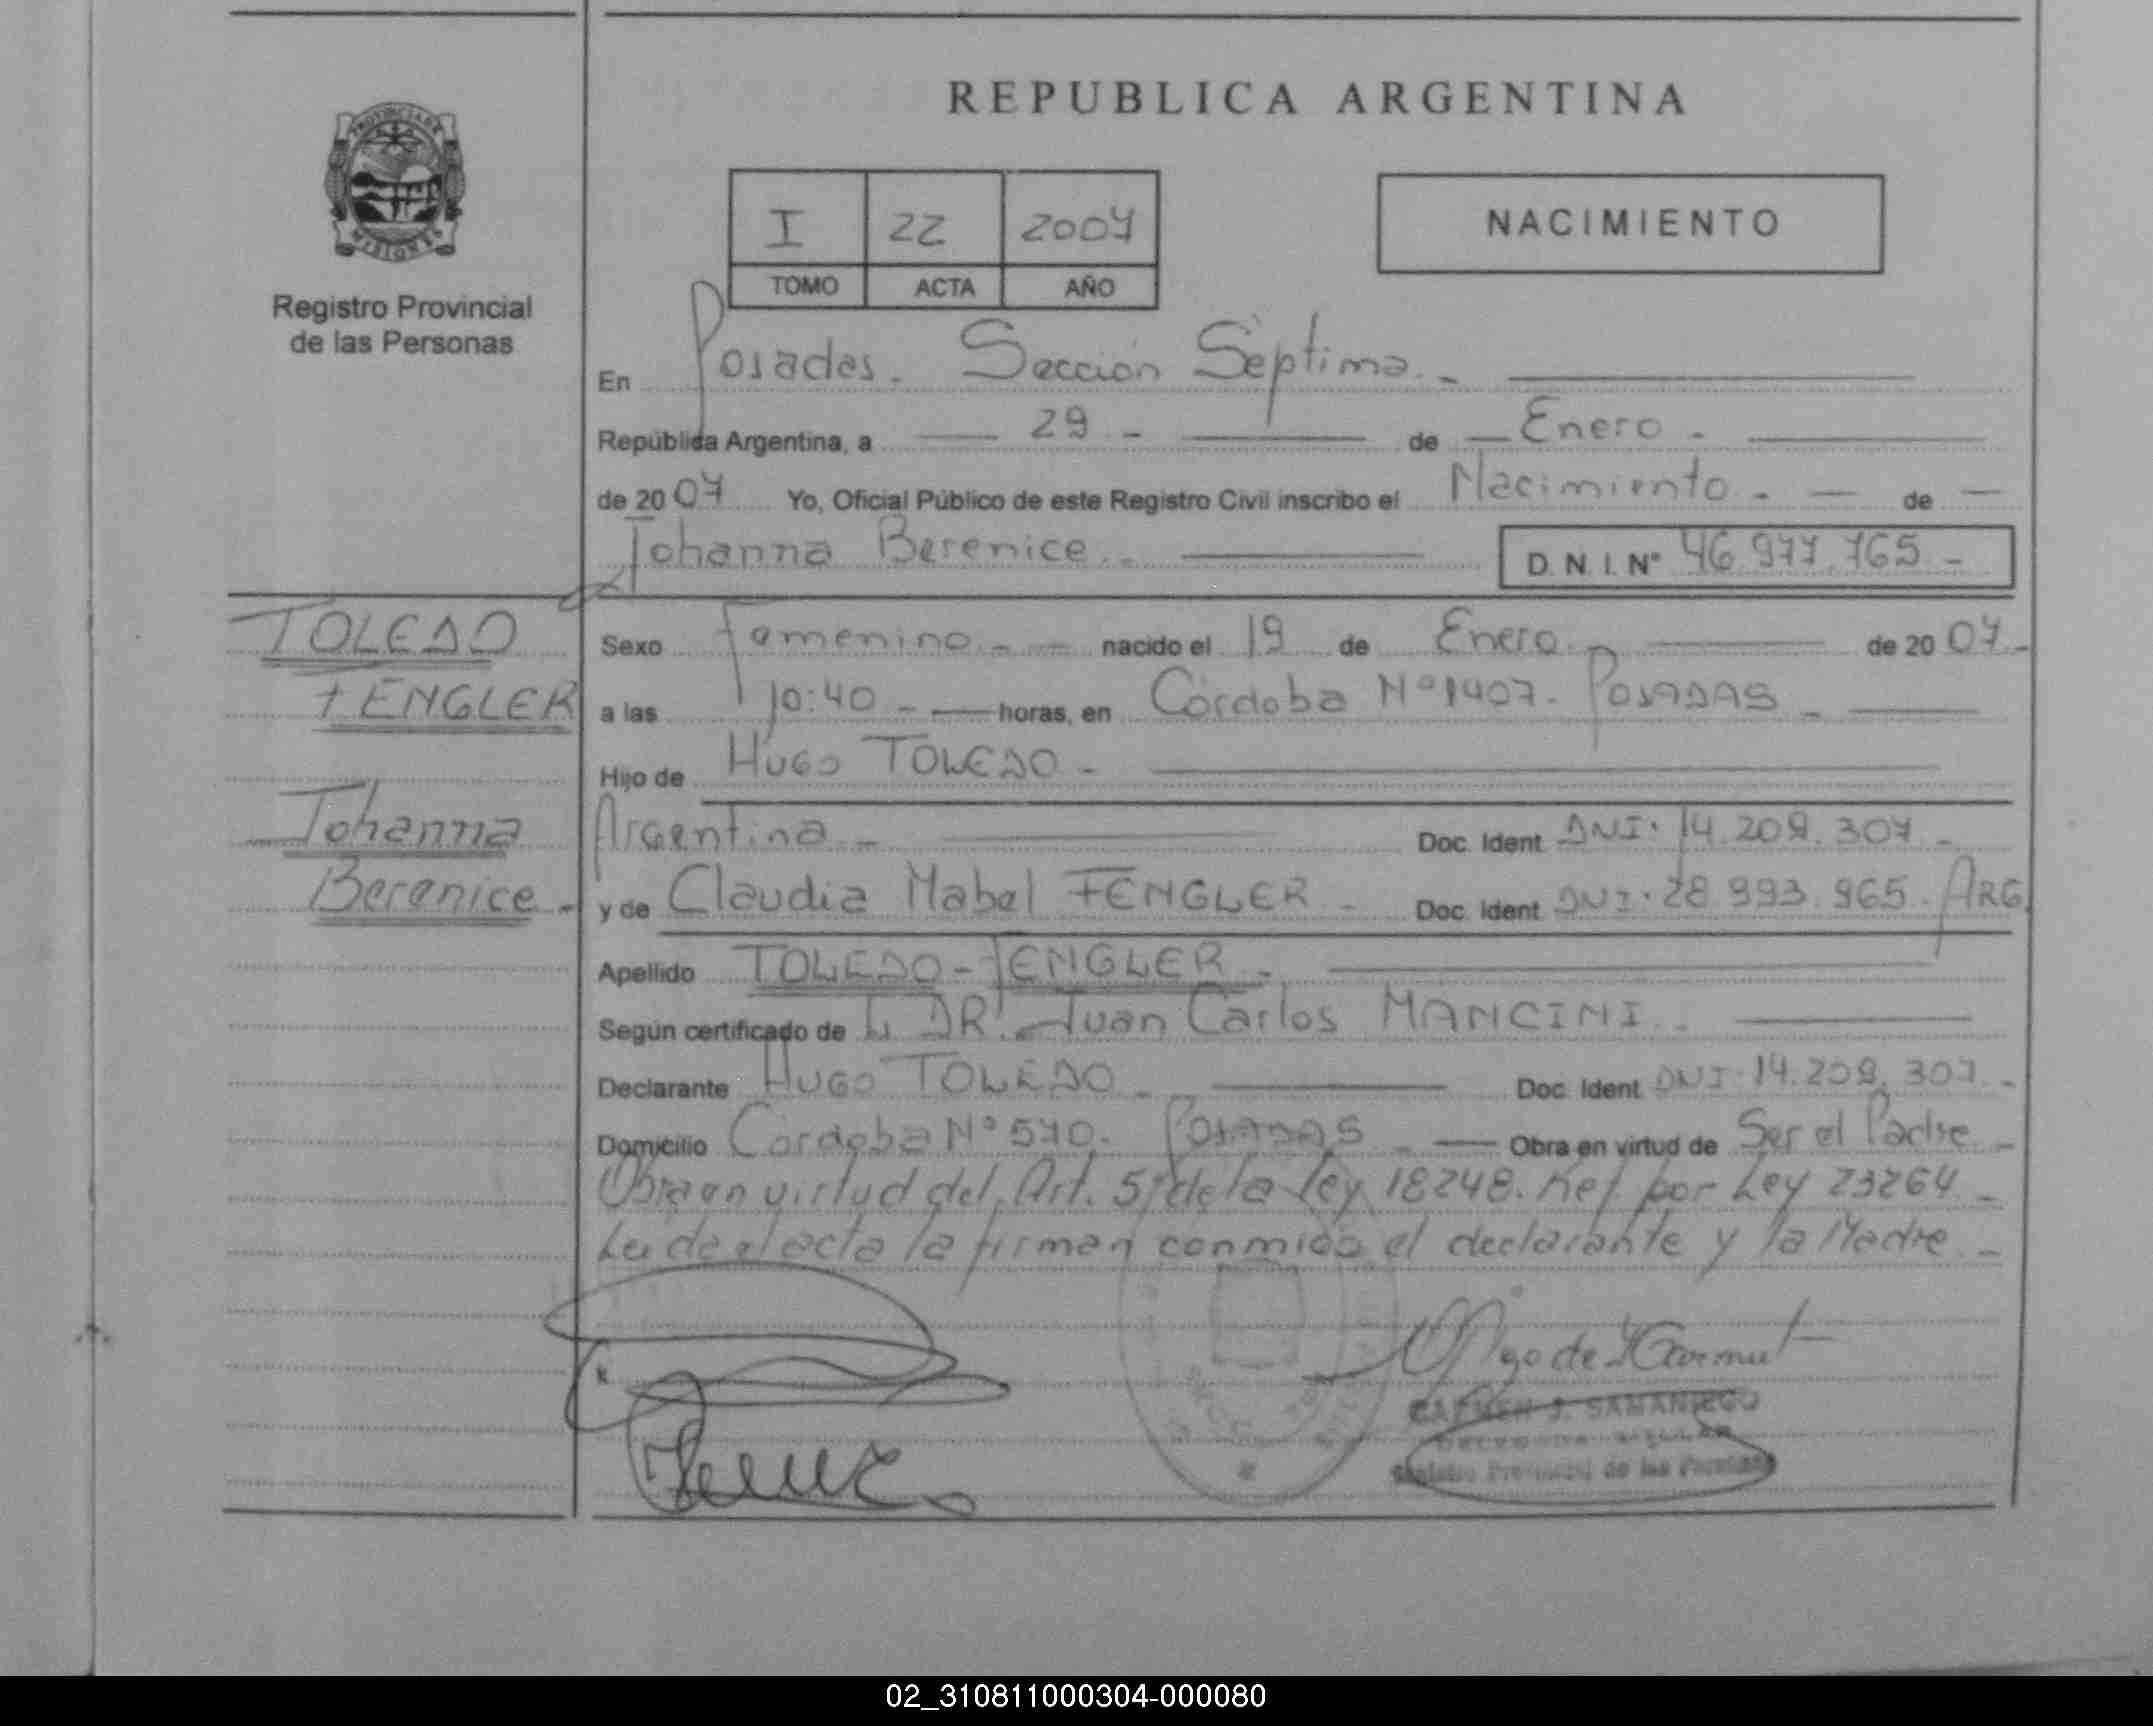 REPUBLICA ARGENTINA
PROVINCIA DE
MISIONES
Registro Provincial
de las Personas
I 22 2007
TOMO ACTA AÑO
NACIMIENTO
En Posadas. Sección Séptima. -
República Argentina, a 29 - de Enero -
de 2007 Yo, Oficial Público de este Registro Civil inscribo el Nacimiento - de
Johanna Berenice. - D. N. I. Nº 46.977.765 -
TOLEDO
FENGLER
Johanna
Berenice -
Sexo Femenino - nacido el 19 de Enero - de 2007 -
a las 10:40 - horas, en Córdoba Nº 1407. POSADAS -
Hijo de HUGO TOLEDO -
Argentina - Doc. Ident. DNI. 14.209.307 -
y de Claudia Mabel FENGLER - Doc. Ident. DNI. 28.993.965. ARG.
Apellido TOLEDO-FENGLER -
Según certificado de DR. Juan Carlos MANCINI.
Declarante HUGO TOLEDO - Doc. Ident. DNI. 14.209.307 -
Domicilio Córdoba Nº 570. POSADAS - Obra en virtud de Ser el Padre -
Obra en virtud del Art. 5 de la ley 18248. Ref. por Ley 23264 -
Leida el acta la firman conmigo el declarante y la Madre -
CARMEN J. SAMANIEGO
Registro Provincial de las Personas
02_310811000304-000080